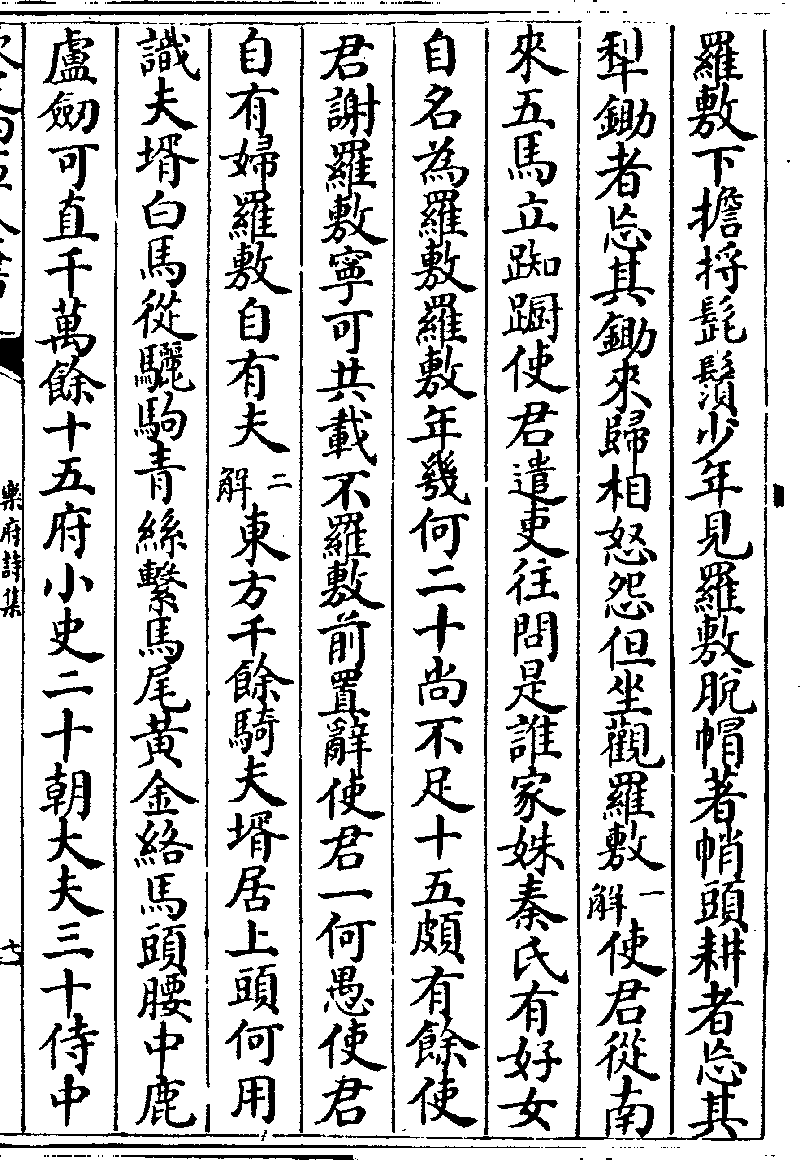 羅敷下擔捋髭鬚少年見羅敷脫帽著帩頭耕者忘其
犁鋤者忘其鋤來歸相怒怨但坐觀羅敷一解使君從南
來五馬立踟躕使君遣吏往問是誰家姝秦氏有好女
自名為羅敷羅敷年幾何二十尚不足十五頗有餘使
君謝羅敷寧可共載不羅敷前置辭使君一何愚使君
自有婦羅敷自有夫二解東方千餘騎夫壻居上頭何用
識夫壻白馬從驪駒青絲繫馬尾黃金絡馬頭腰中鹿
盧劒可直千萬餘十五府小史二十朝大夫三十侍中
樂府詩集